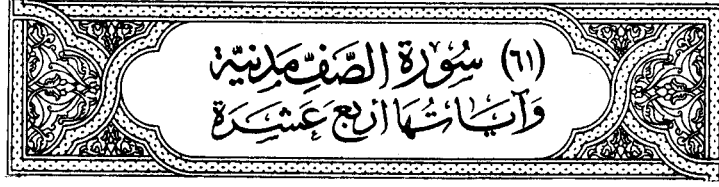 (٦١) سُوْرَة الصَّفِّ مَدَنِيَّة
وَآيَاتُهَا أَرْبَعَ عَشَرَة